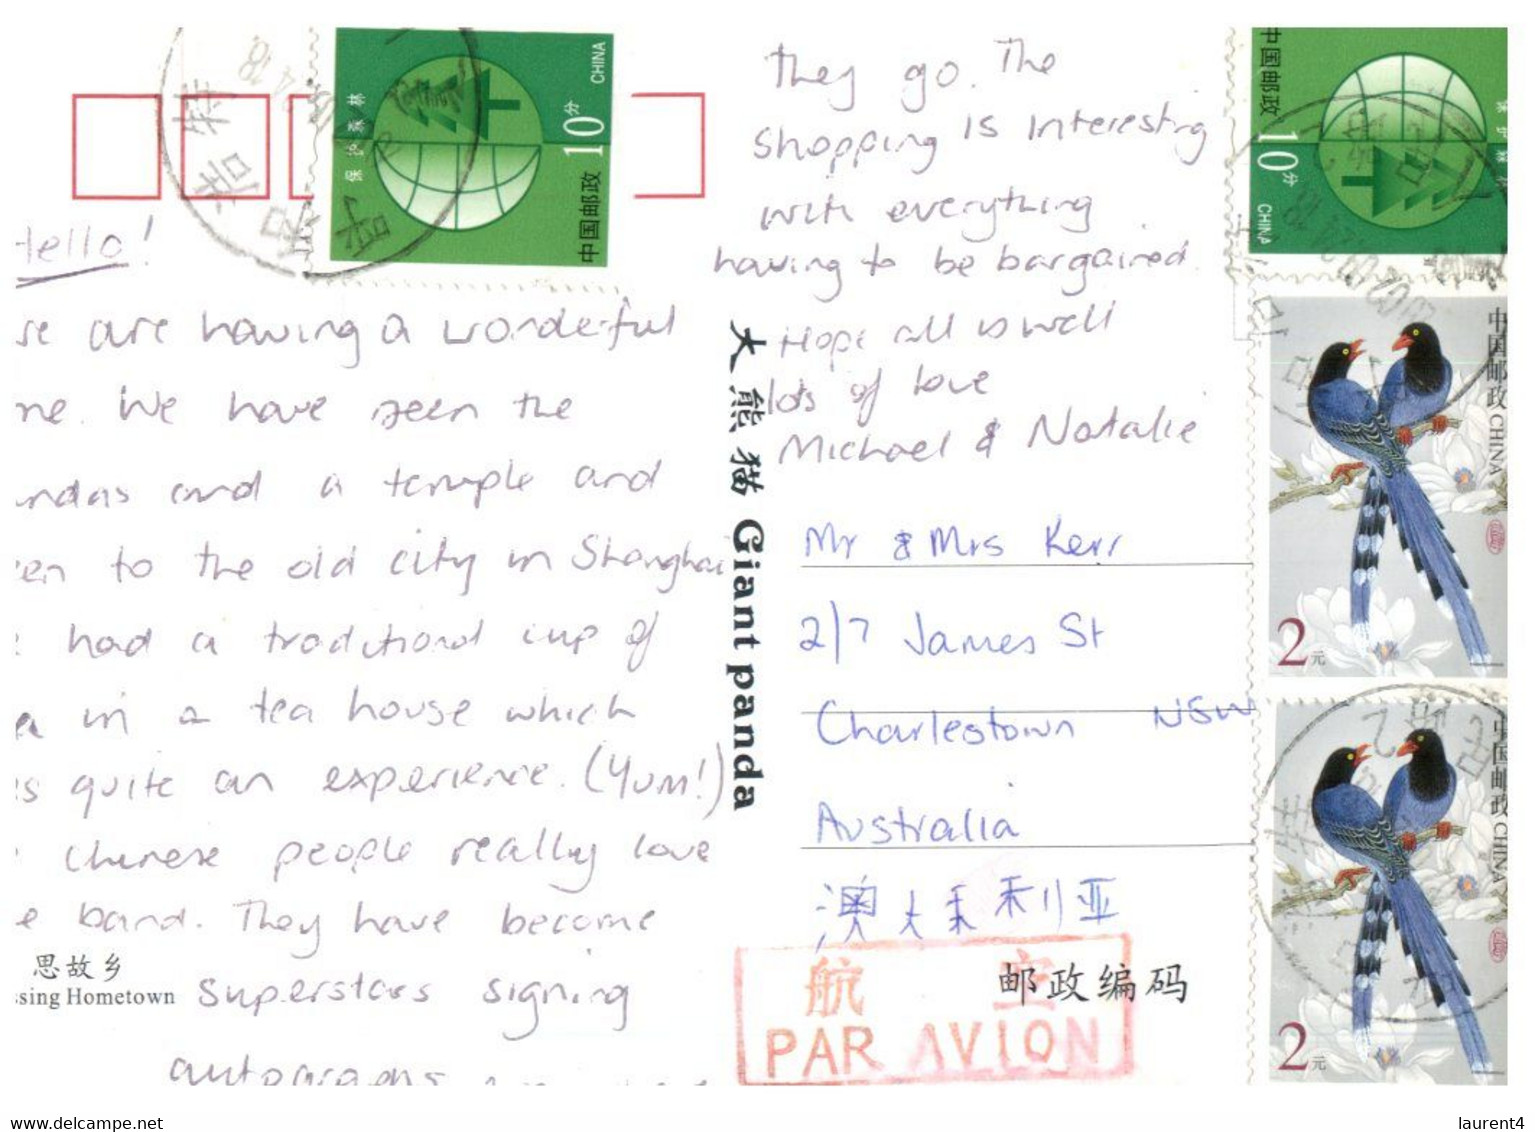 Hello!
are having a wonderful
We have seen the
and a temple and
to the old city in Shanghai
had a traditional cup of
in a tea house which
quite an experience. (Yum!)
Chinese people really love
band. They have become
superstars signing
autographs
思故乡
ssing Hometown
they go. The
shopping is interesting
with everything
having to be bargained.
Hope all is well
lots of love
Michael & Natalie
大熊猫 Giant panda
Mr & Mrs Kerr
2/7 James St
Charlestown NSW
Australia
澳大利亚
邮政编码
航 空
PAR AVION
保护森林
10分 CHINA
中国邮政
中国邮政
10分 CHINA
保护森林
中国邮政 CHINA
2元
中国邮政 CHINA
2元
delcampe.net
laurent4